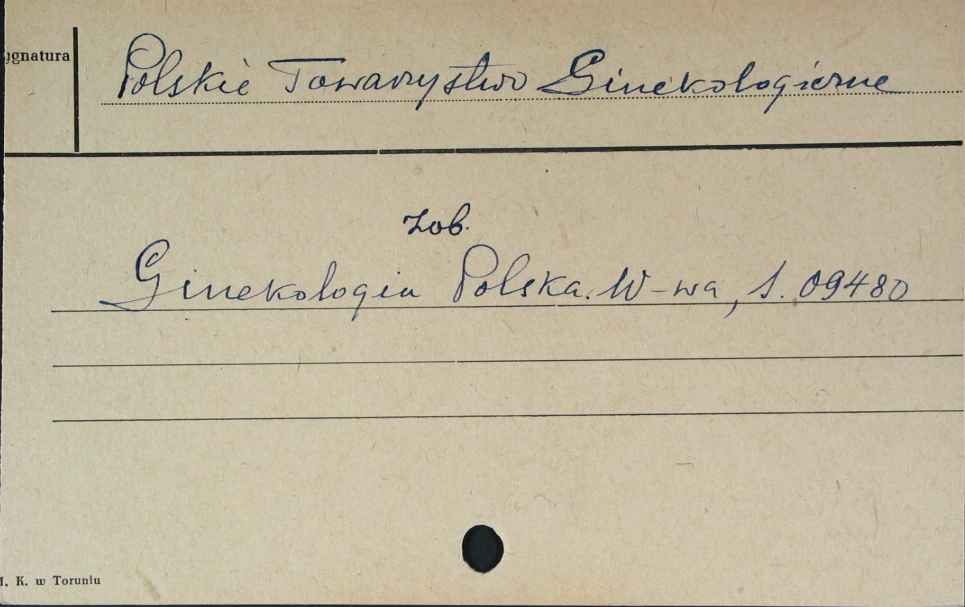 ygnatura
Polskie Towarzystwo Ginekologiczne
zob.
Ginekologia Polska. W-wa, S. 09480
M. K. w Toruniu